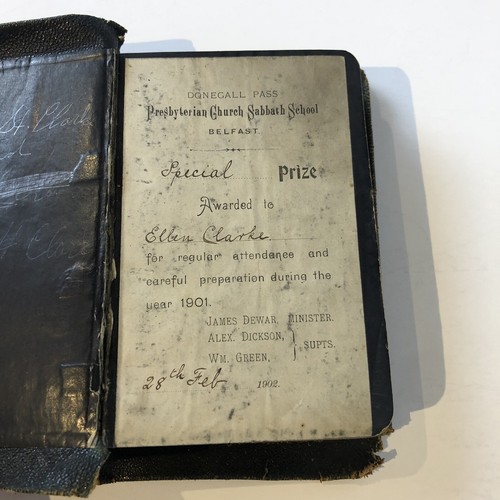 DONEGALL PASS
Presbyterian Church Sabbath School
BELFAST
Special Prize
Awarded to
Ellen Clarke
for regular attendance and
careful preparation during the
year 1901.
JAMES DEWAR, MINISTER.
ALEX. DICKSON,
WM. GREEN, } SUPTS.
28th Feb 1902.